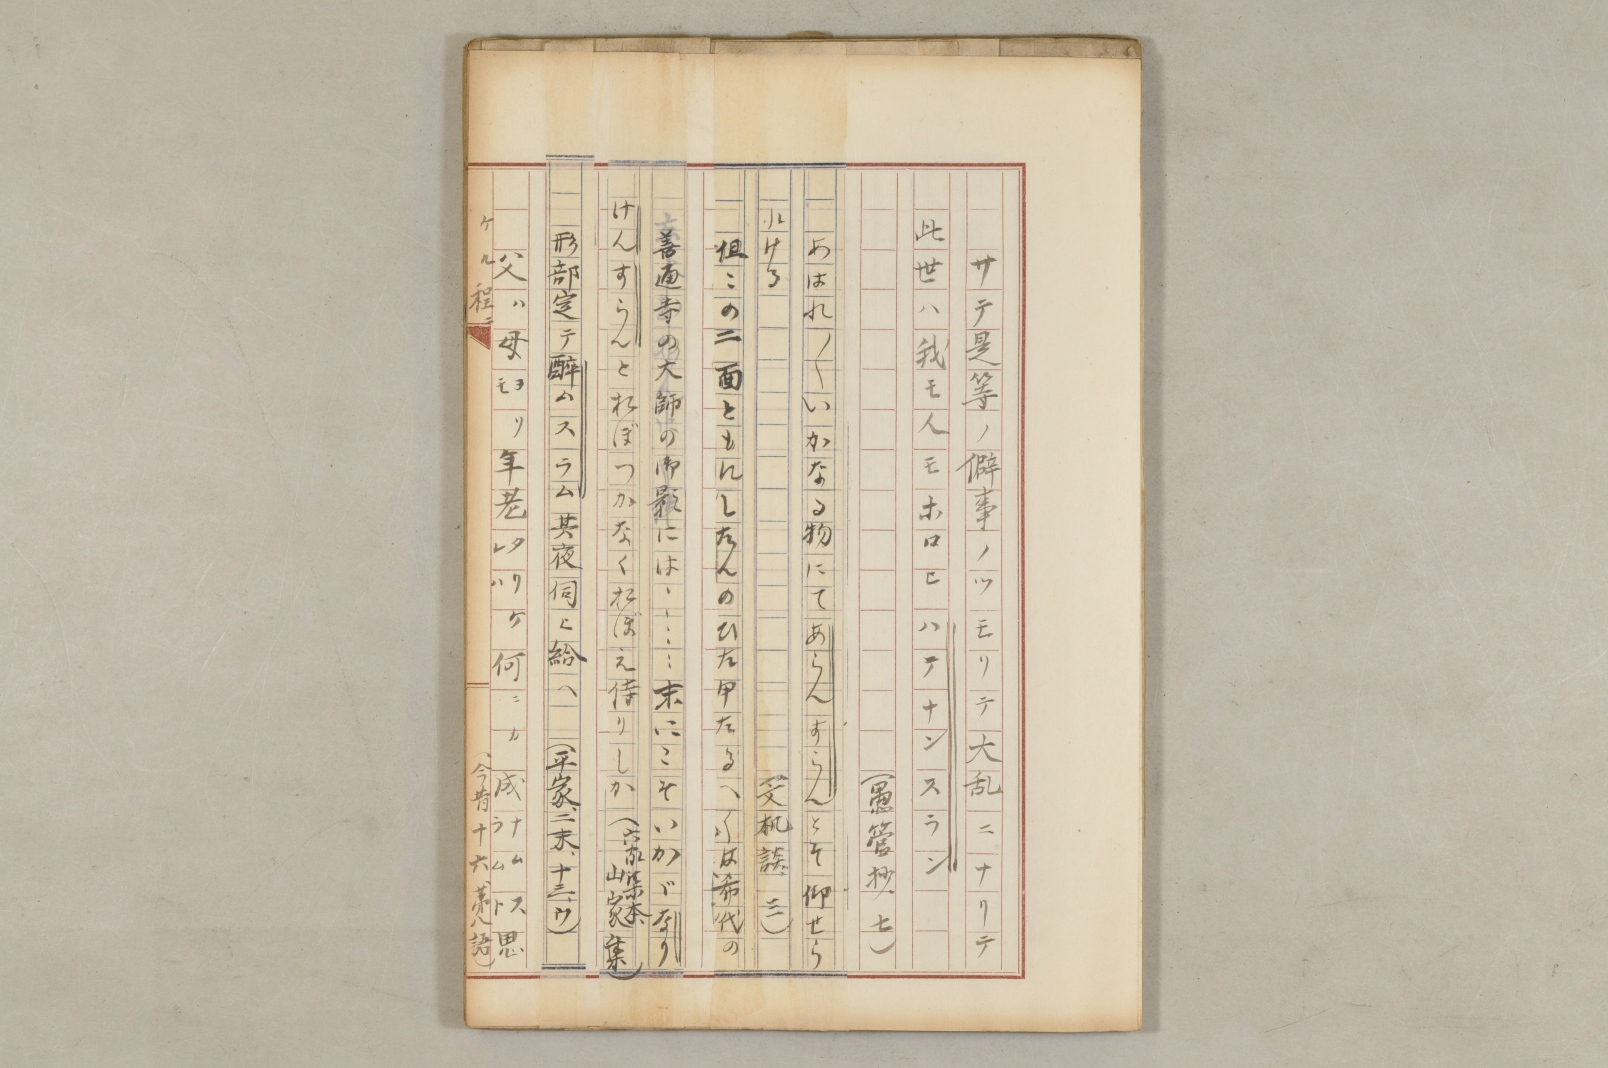 サテ是等ノ僻事ノツモリテ大乱ニナリテ
此世ハ我モ人モホロヒハテナンスラン
（愚管抄、七）
あはれ／＼いかなる物にてあらんすらんとそ仰せら
れける
（文机談、三）
但この二面ともにしたんのひた甲たるへくは希代の
善通寺の大師の御影には、、…：末にこそいかゞなり
けんすらんとおぼつかなくおぼえ侍りしか
（六家集本、山家集）
形部定テ酔ムスラム其夜伺ヒ給ヘ
（平家、二末、十三、ウ）
父ハ母ヨリモ年老タリケレハ何ニカ成ナムスラムト思
ケル程ニ
（今昔十六、第八語）